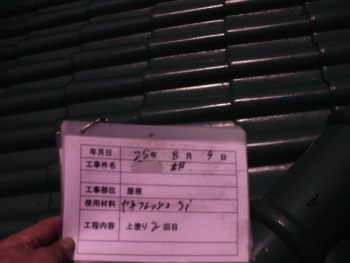 年月日 25年 8月 9日
工事件名 邸
工事部位 屋根
使用材料 ヤネフレッシュ Si
工程内容 上塗り 2回目